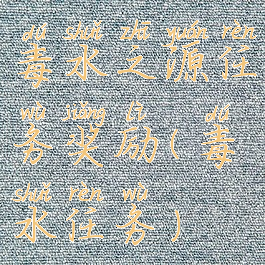 dú shuǐ zhī yuán rèn
毒水之源任
wù jiǎng lì dú
务奖励(毒
shuǐ rèn wù
水任务)